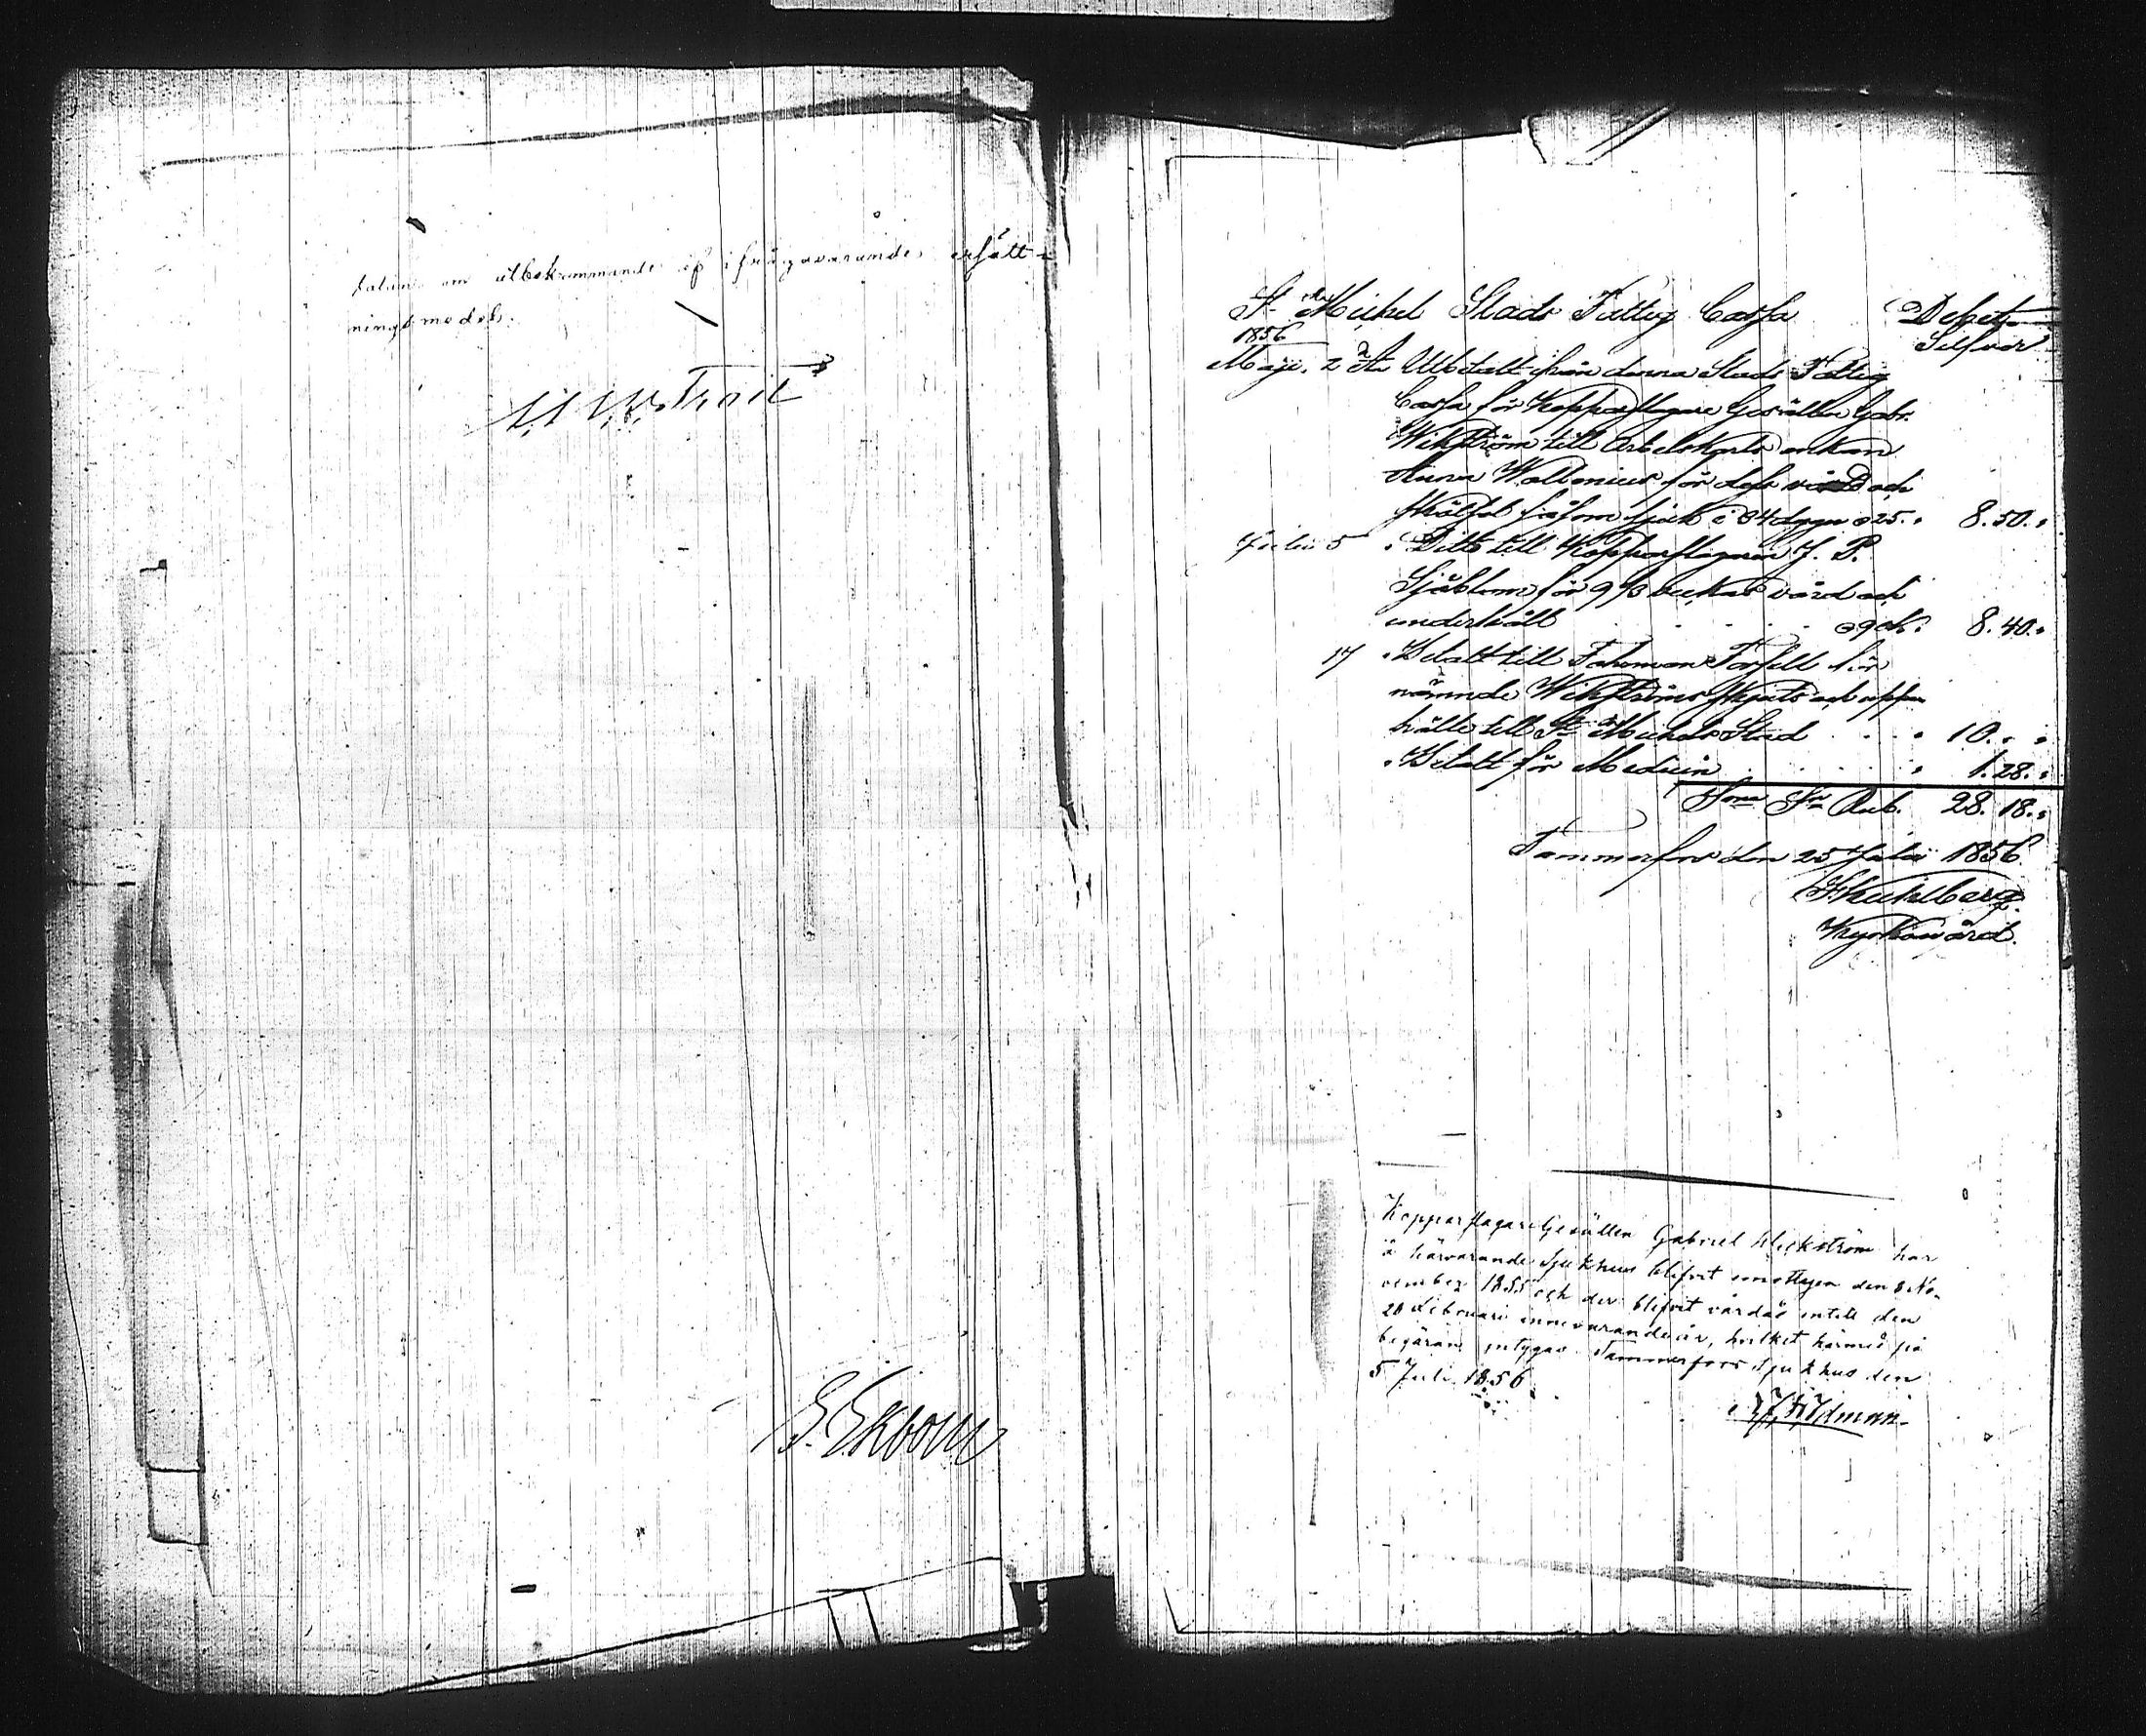 talan om utbekommande af ifrågavarande ersätt-
ningsmedel.
G. Ekbom
St Michel Stads Fattig Cassa Debet
1856 Silfver
Maji. 2 An Utbetalt från denna Stads Fattig
Cassa för Kopparslagare Gesällen Gabr.
Wikström till Arbetskarls enkan
Anna Wallenius för dess vård och
skötsel såsom sjuk i 34 dygn a 25. 8.50.
Julii 5 Ditto till Kopparslagaren J. P.
Sjöblom för 9 1/3 veckas vård och
underhåll a 90 k. 8.40.
17 Betalt till Forsell för
nämnde Wikströms skjuts och uppe
hälle till St Michels Stad 10.
Betalt för Medicin 1.28.
Sma Sr Rub. 28.18.
Tammerfors den 25 Julii 1856.
Kyrkovärd.
Kopparslagare Gesällen Gabriel Wickström har
å härvarande Sjukhus blifvit emottagen den 8 No-
vember 1855 och der blifvit vårdad intill den
20 Februari innevarande år, hvilket härmed på
begäran intygas. Tammerfors Sjukhus den
5 Juli 1856.